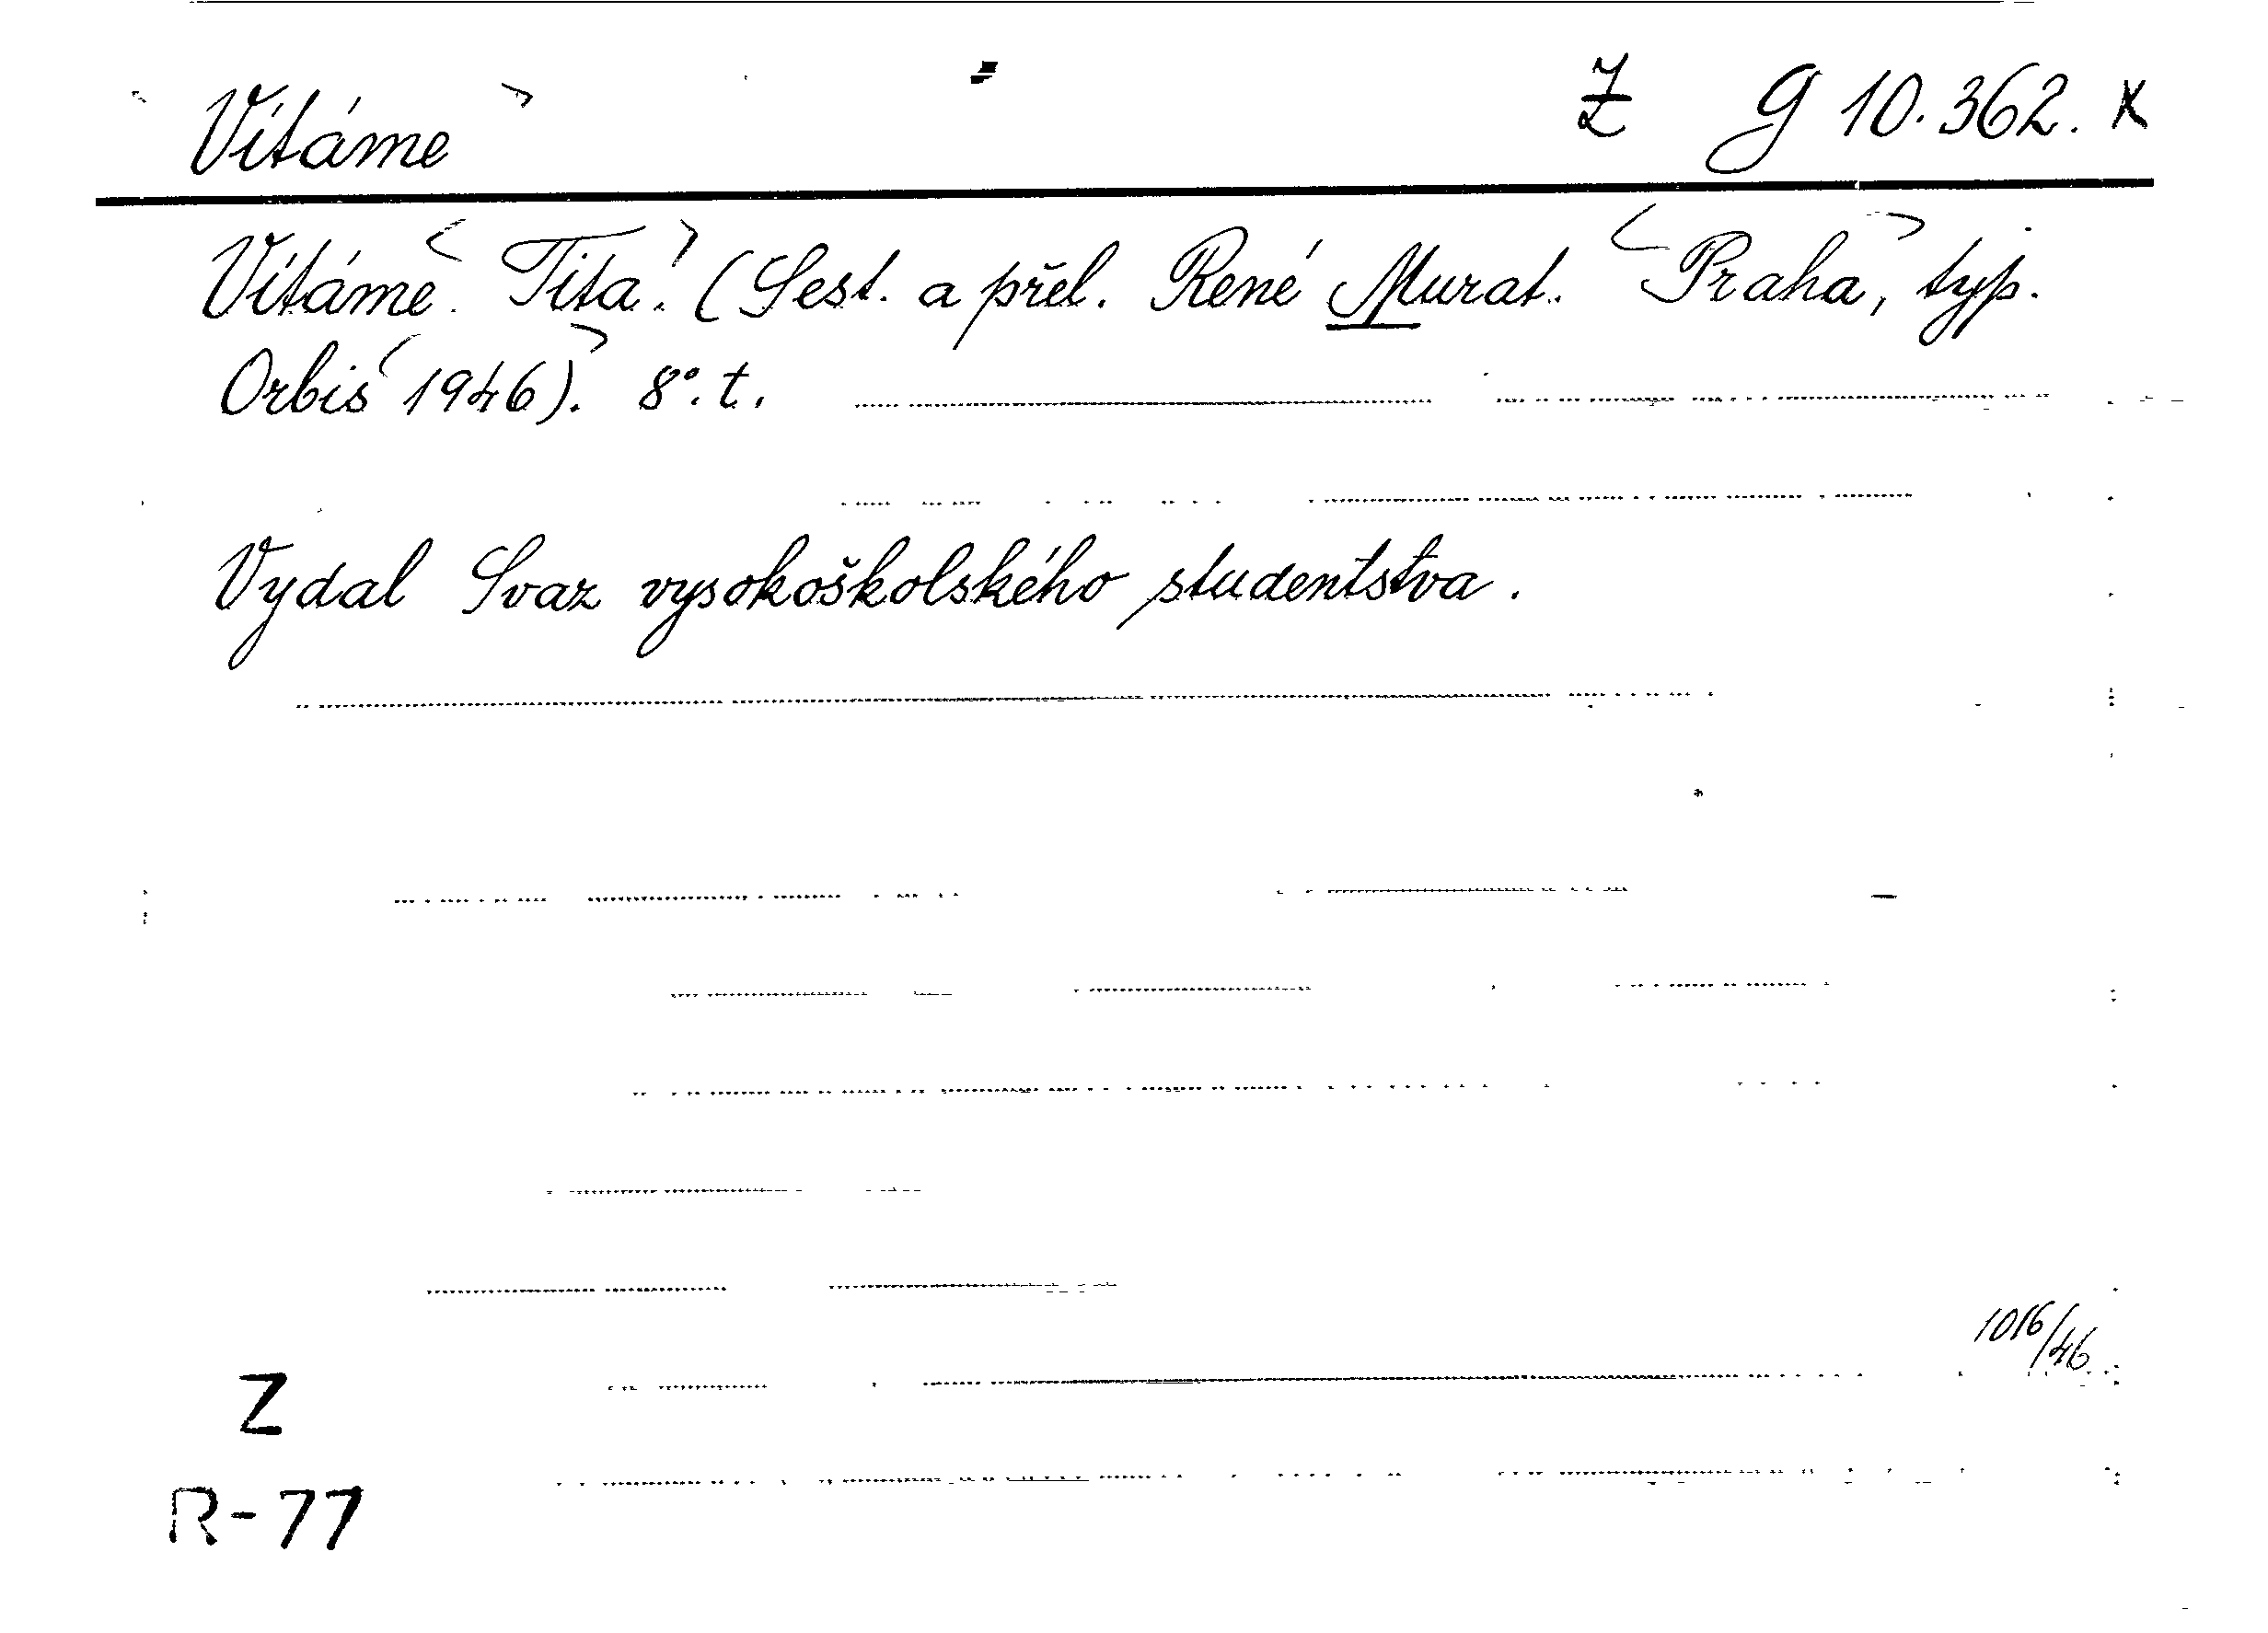 Vítáme Z G 10.362. K
Vítáme Tita! (Sest. a přel. René Murat. Praha, typ.
Orbis 1946). 8°. t.
Vydal Svaz vysokoškolského studentstva.
1016/46
Z
R-77